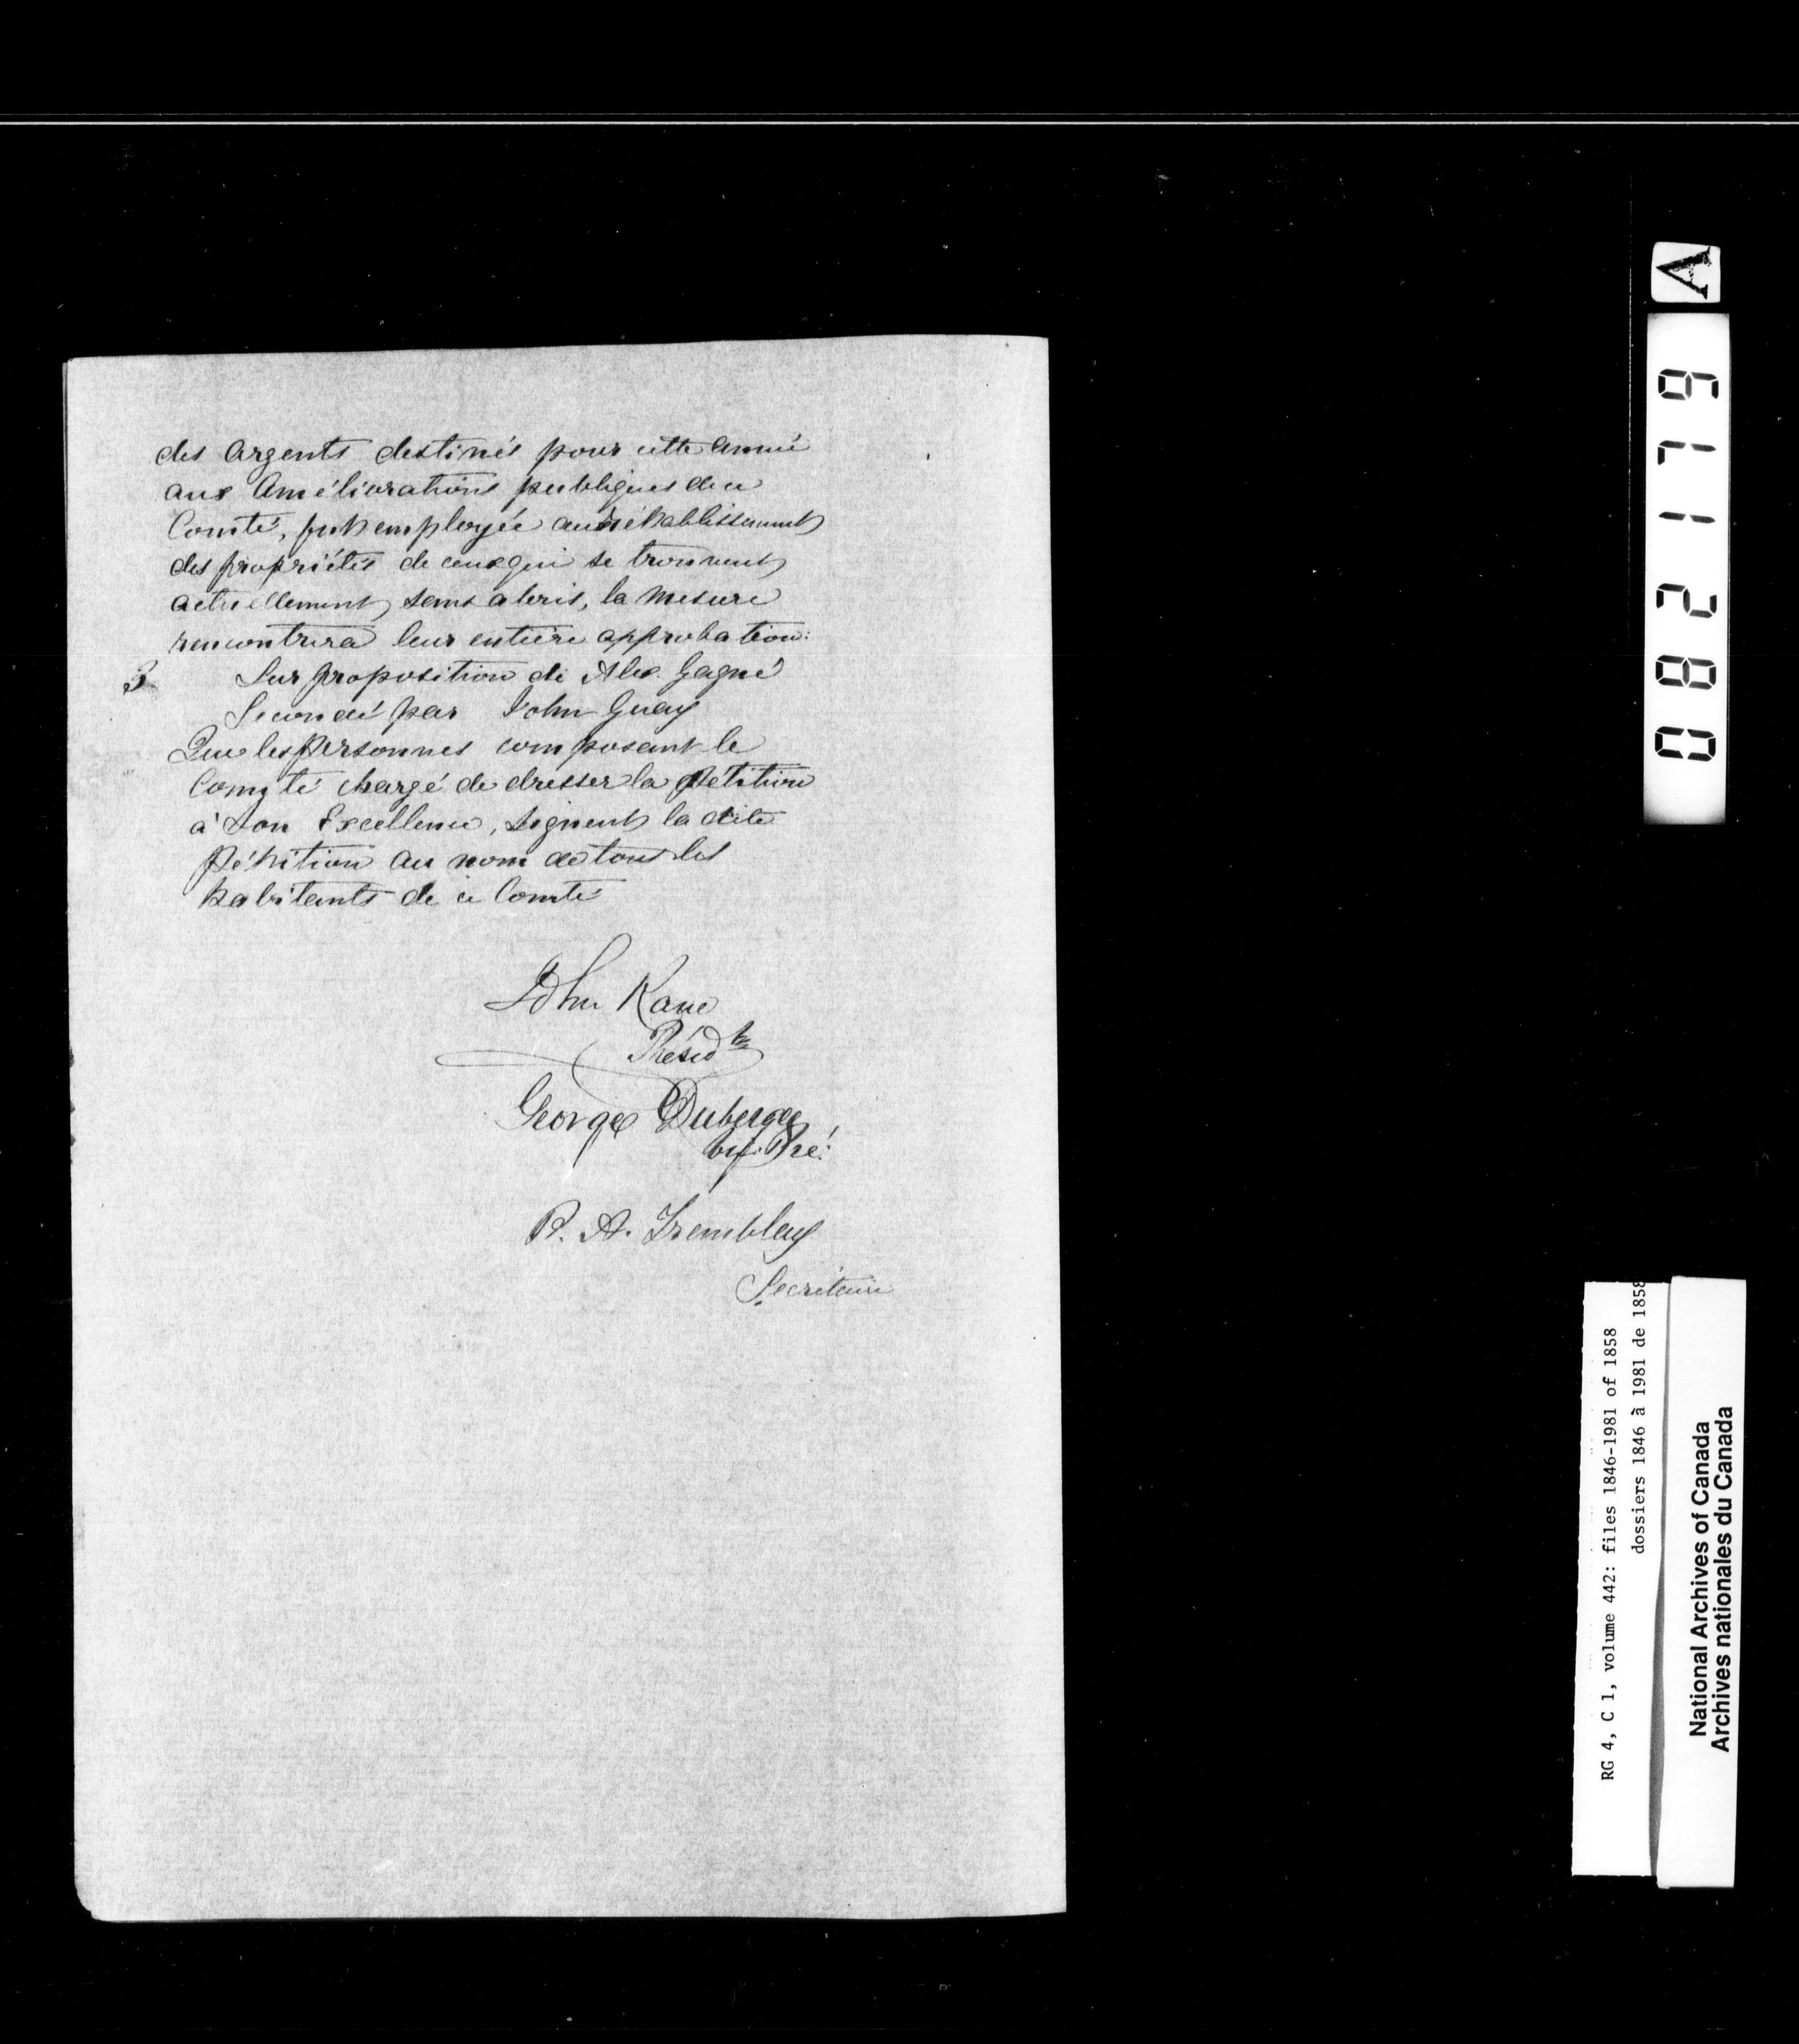 des Argents destinés pour cette année
aux Améliorations publiques de ce
Comté, fut employée au rétablissement
des propriétés de ceux qui se trouvent
actuellement sans abris, la mesure
rencontrera leur entière approbation:
3 Sur proposition de Alex. Gagné
Secondé par John Guay
Que les personnes composant le
Comyté chargé de dresser la Pétition
à Son Excellence, signent la dite
Pétition au nom de tous les
habitants de ce Comté
John Kane
Présidt
George Duberger
Pré:
P. A. Tremblay
Secrétaire
A
082179
RG 4, C 1, volume 442: files 1846-1981 of 1858
dossiers 1846 à 1981 de 1858
National Archives of Canada
Archives nationales du Canada